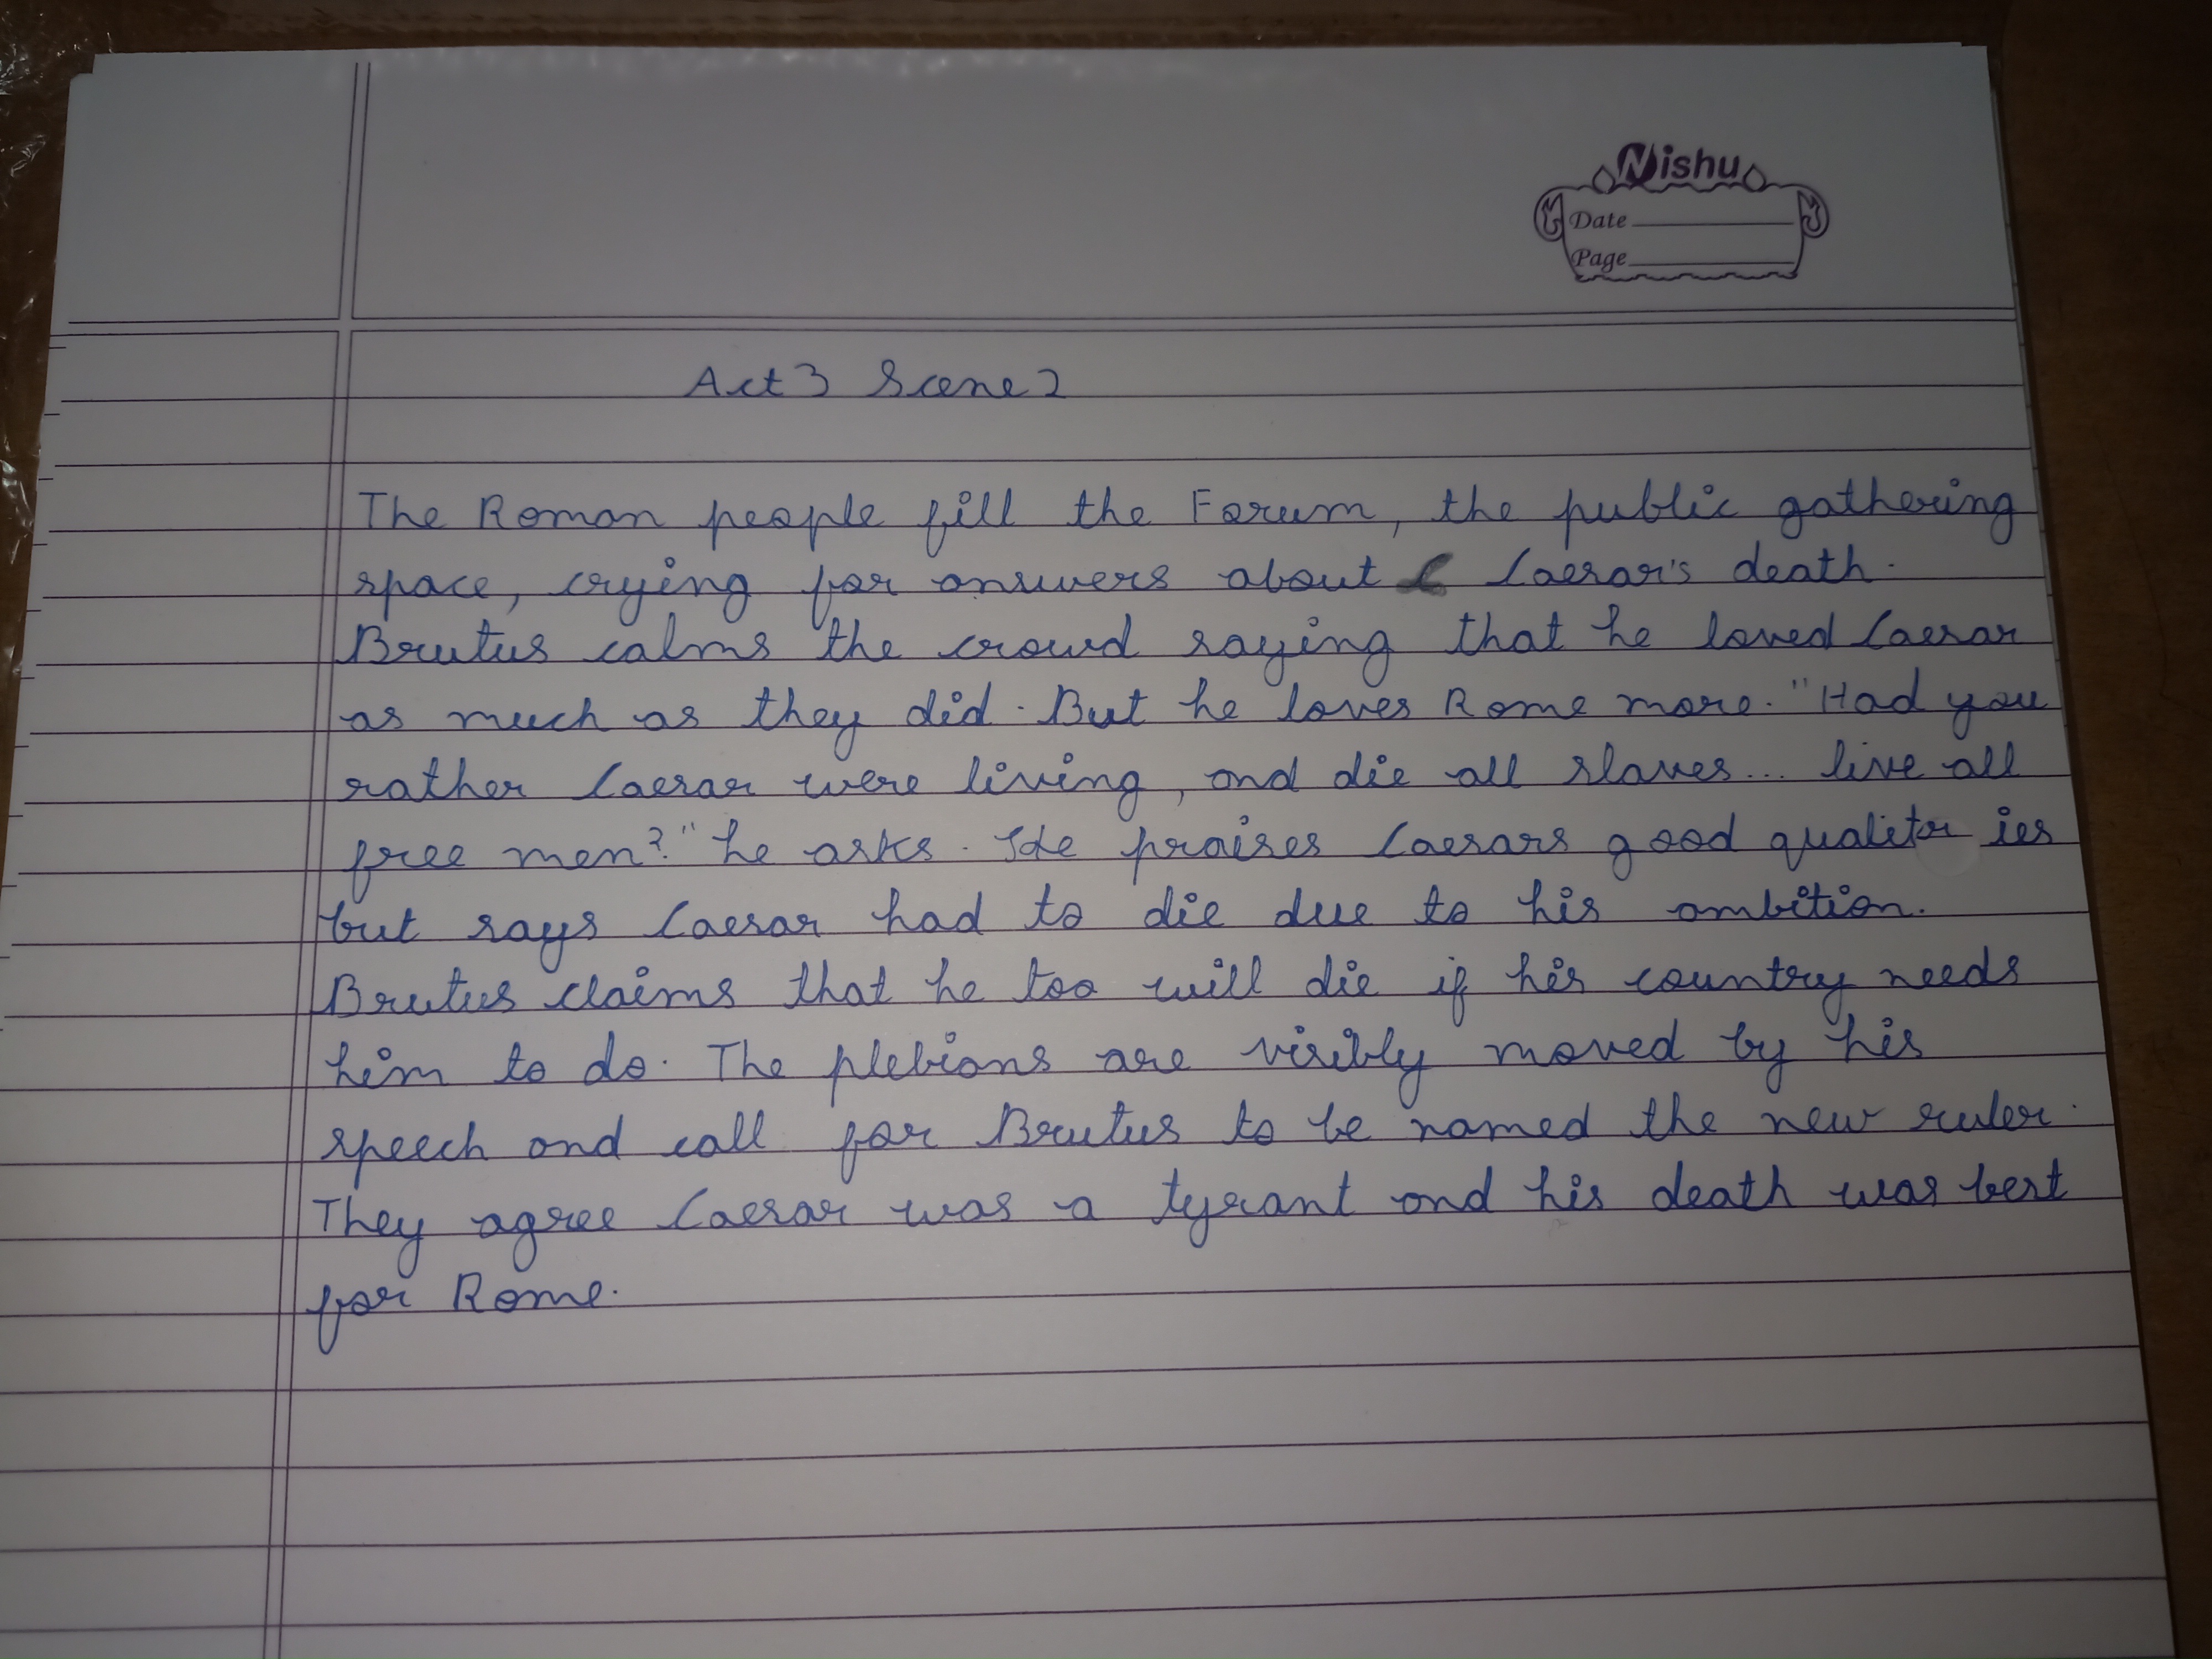 Nishu
Date
Page
Act 3 Scene 2
The Roman people fill the Forum, the public gathering
space, crying for answers about Caesar's death.
Brutus calms the crowd saying that he loved Caesar
as much as they did. But he loves Rome more. "Had you
rather Caesar were living, and die all slaves... live all
free men?" he asks. He praises Caesars good qualities
but says Caesar had to die due to his ambition.
Brutus claims that he too will die if his country needs
him to do. The plebians are visibly moved by his
speech and call for Brutus to be named the new ruler.
They agree Caesar was a tyrant and his death was best
for Rome.